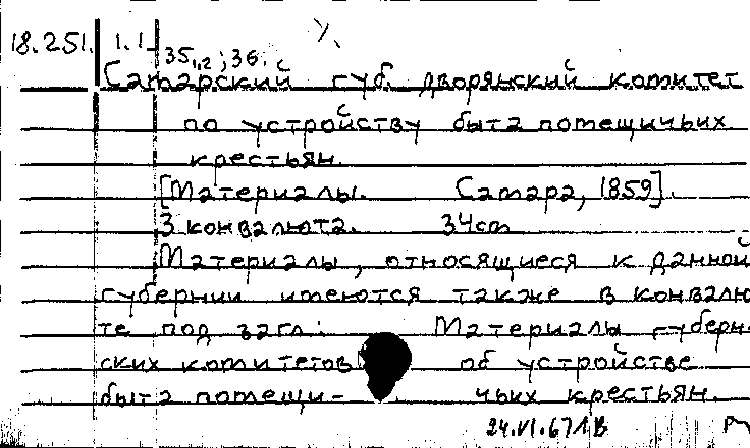 18.251. 1.1. 35₁,₂; 36.
Самарский губ. дворянский комитет
по устройству быта помещичьих
крестьян.
[Материалы. Самара, 1859].
3 конволюта. 34cm
Материалы, относящиеся к данной
губернии имеются также в конволю
те под загл.: Материалы губерн-
ских комитетов об устройстве
быта помещи- чьих крестьян.
24.VI.67